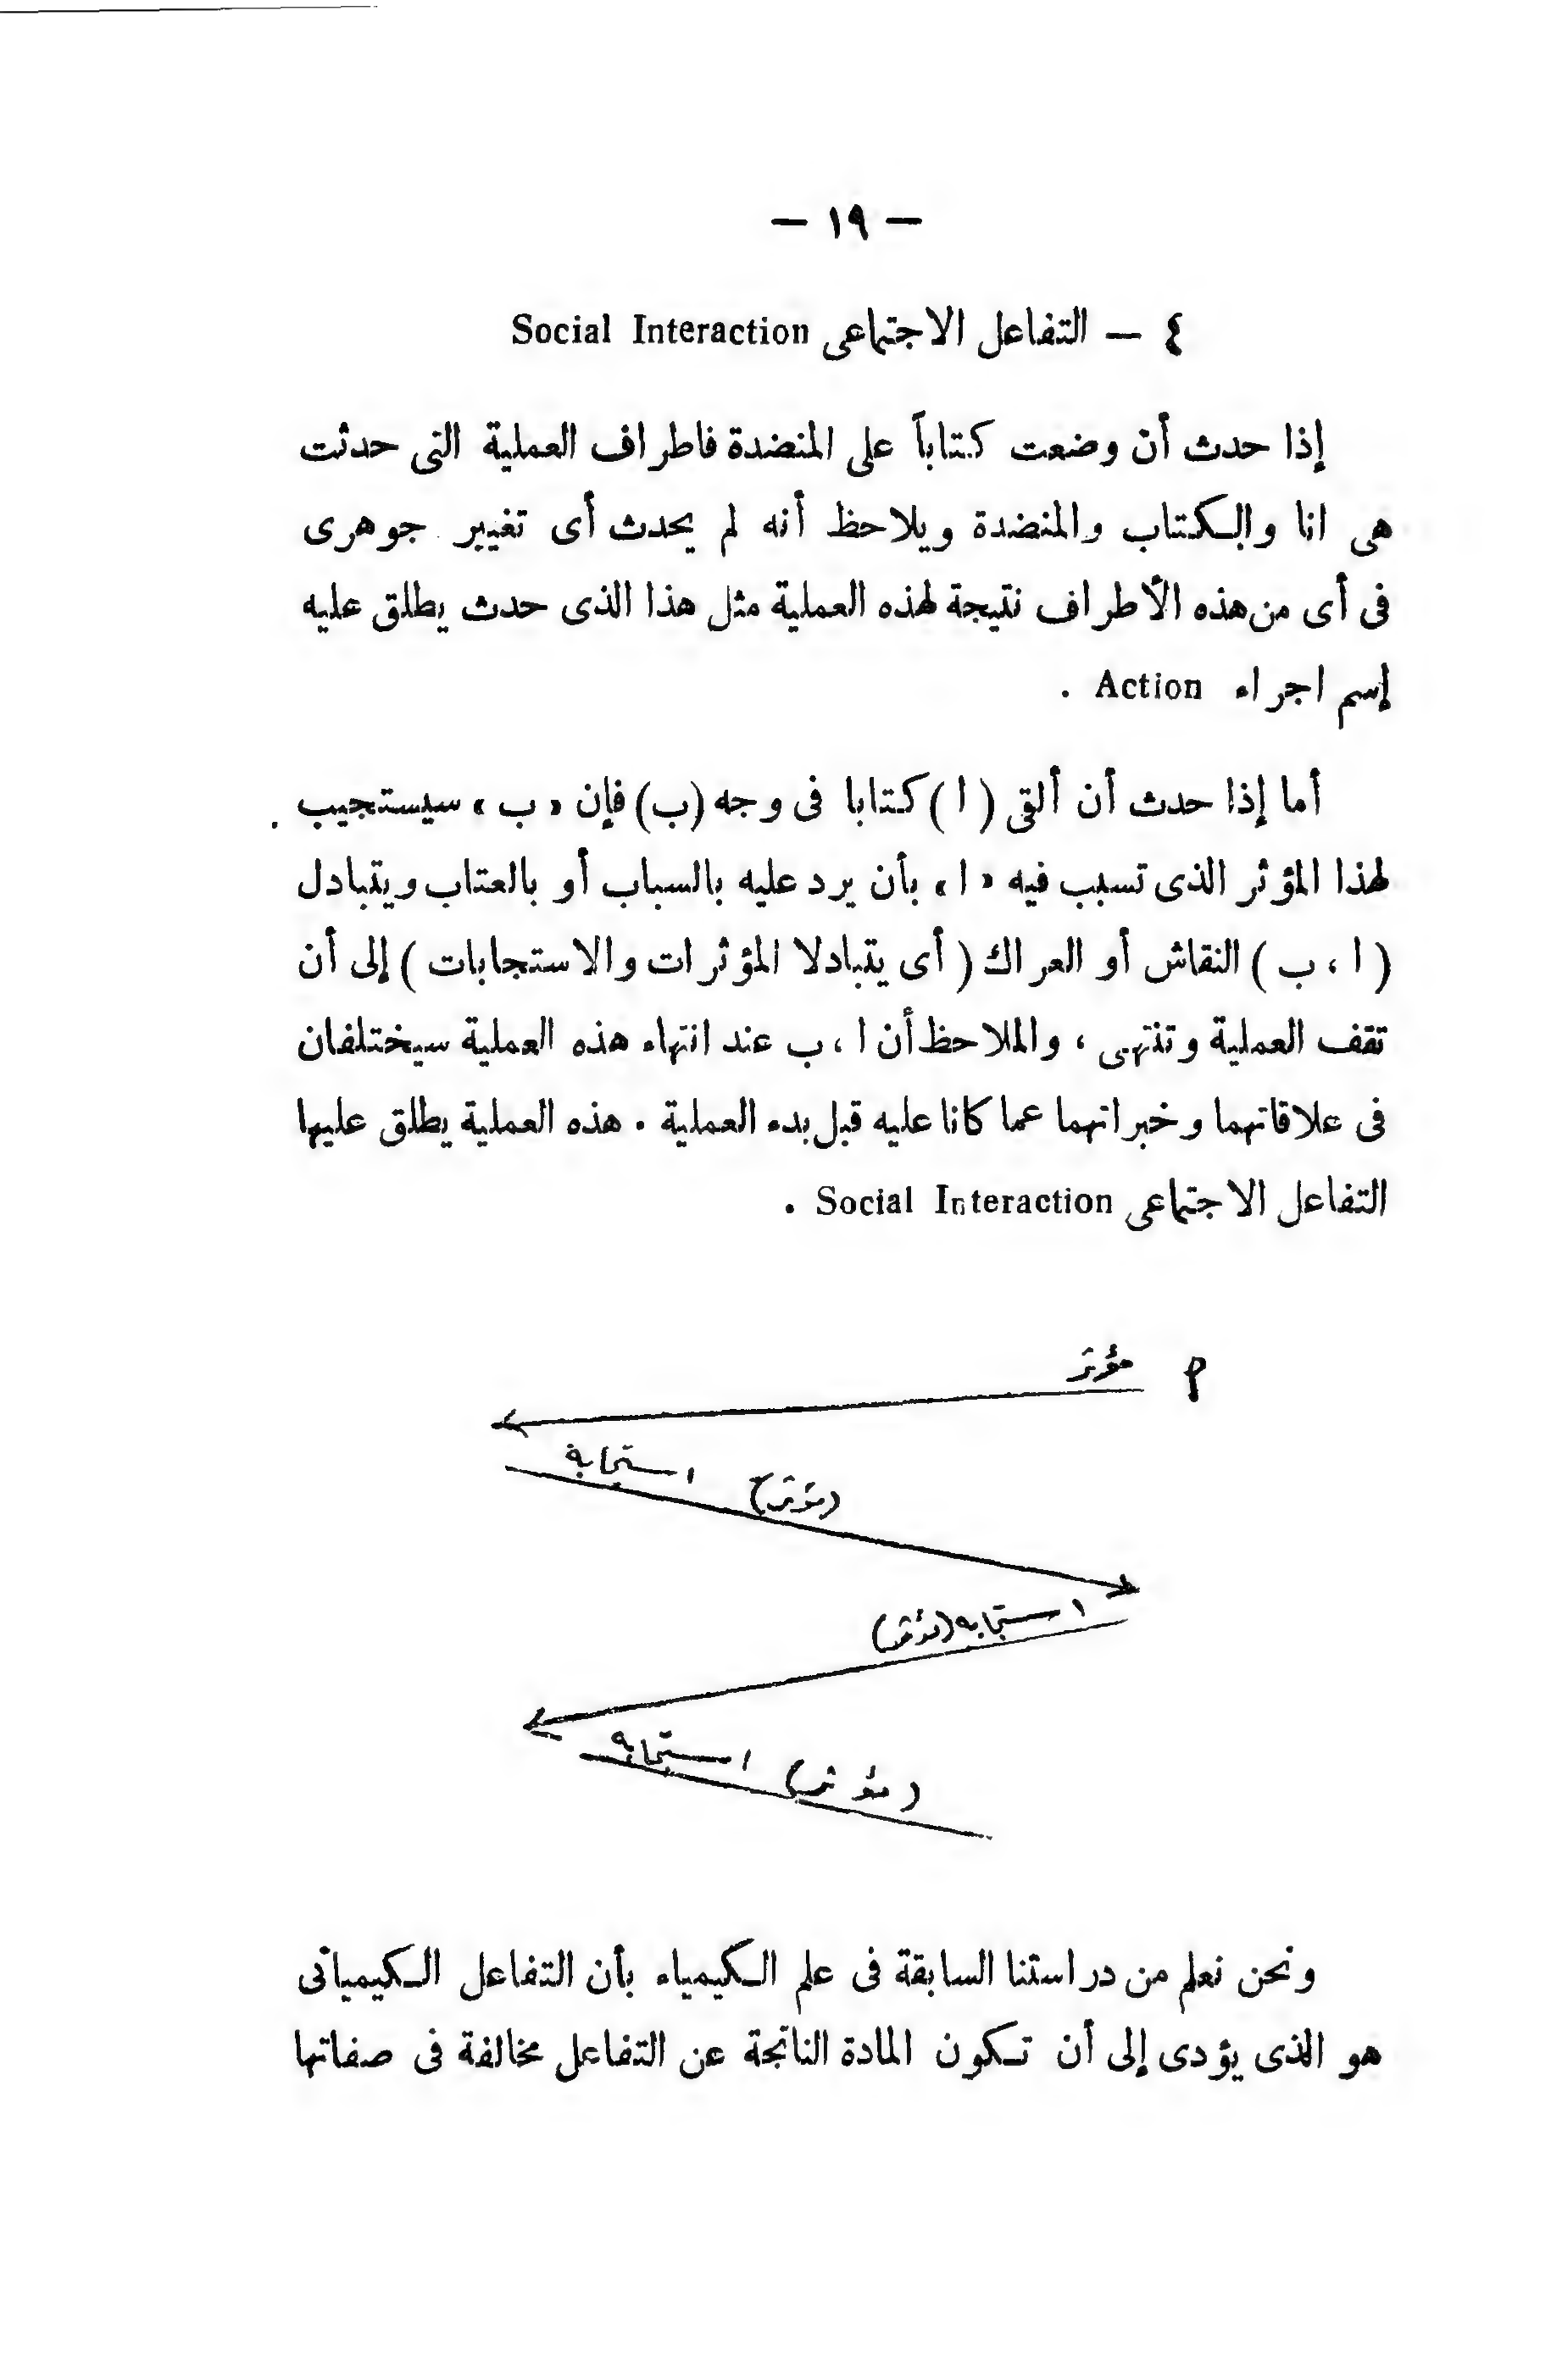 — ١٩ —
٤ — التفاعل الاجتماعى Social Interaction
إذا حدث أن وضعت كتاباً على المنضدة فاطراف العملية التى حدثت
هى انا والكتاب والمنضدة ويلاحظ أنه لم يحدث أى تغيير جوهرى
فى أى من هذه الأطراف نتيجة لهذه العملية مثل هذا الذى حدث يطلق عليه
إسم اجراء Action .
أما إذا حدث أن ألقى ( ا ) كتابا فى وجه (ب) فإن « ب » سيستجيب
لهذا المؤثر الذى تسبب فيه « ا » بأن يرد عليه بالسباب أو بالعتاب ويتبادل
( ا ، ب ) النقاش أو العراك ( أى يتبادلا المؤثرات والاستجابات ) إلى أن
تقف العملية وتنتهى ، والملاحظ أن ا ، ب عند انتهاء هذه العملية سيختلفان
فى علاقاتهما وخبراتهما عما كانا عليه قبل بدء العملية . هذه العملية يطلق عليها
التفاعل الاجتماعى Social Interaction .
م مؤثر
استجابة (مؤثر)
استجابه (مؤثر)
استجابه (مؤثر)
ونحن نعلم من دراستنا السابقة فى علم الكيمياء بأن التفاعل الكيميائى
هو الذى يؤدى إلى أن تكون المادة الناتجة عن التفاعل مخالفة فى صفاتها